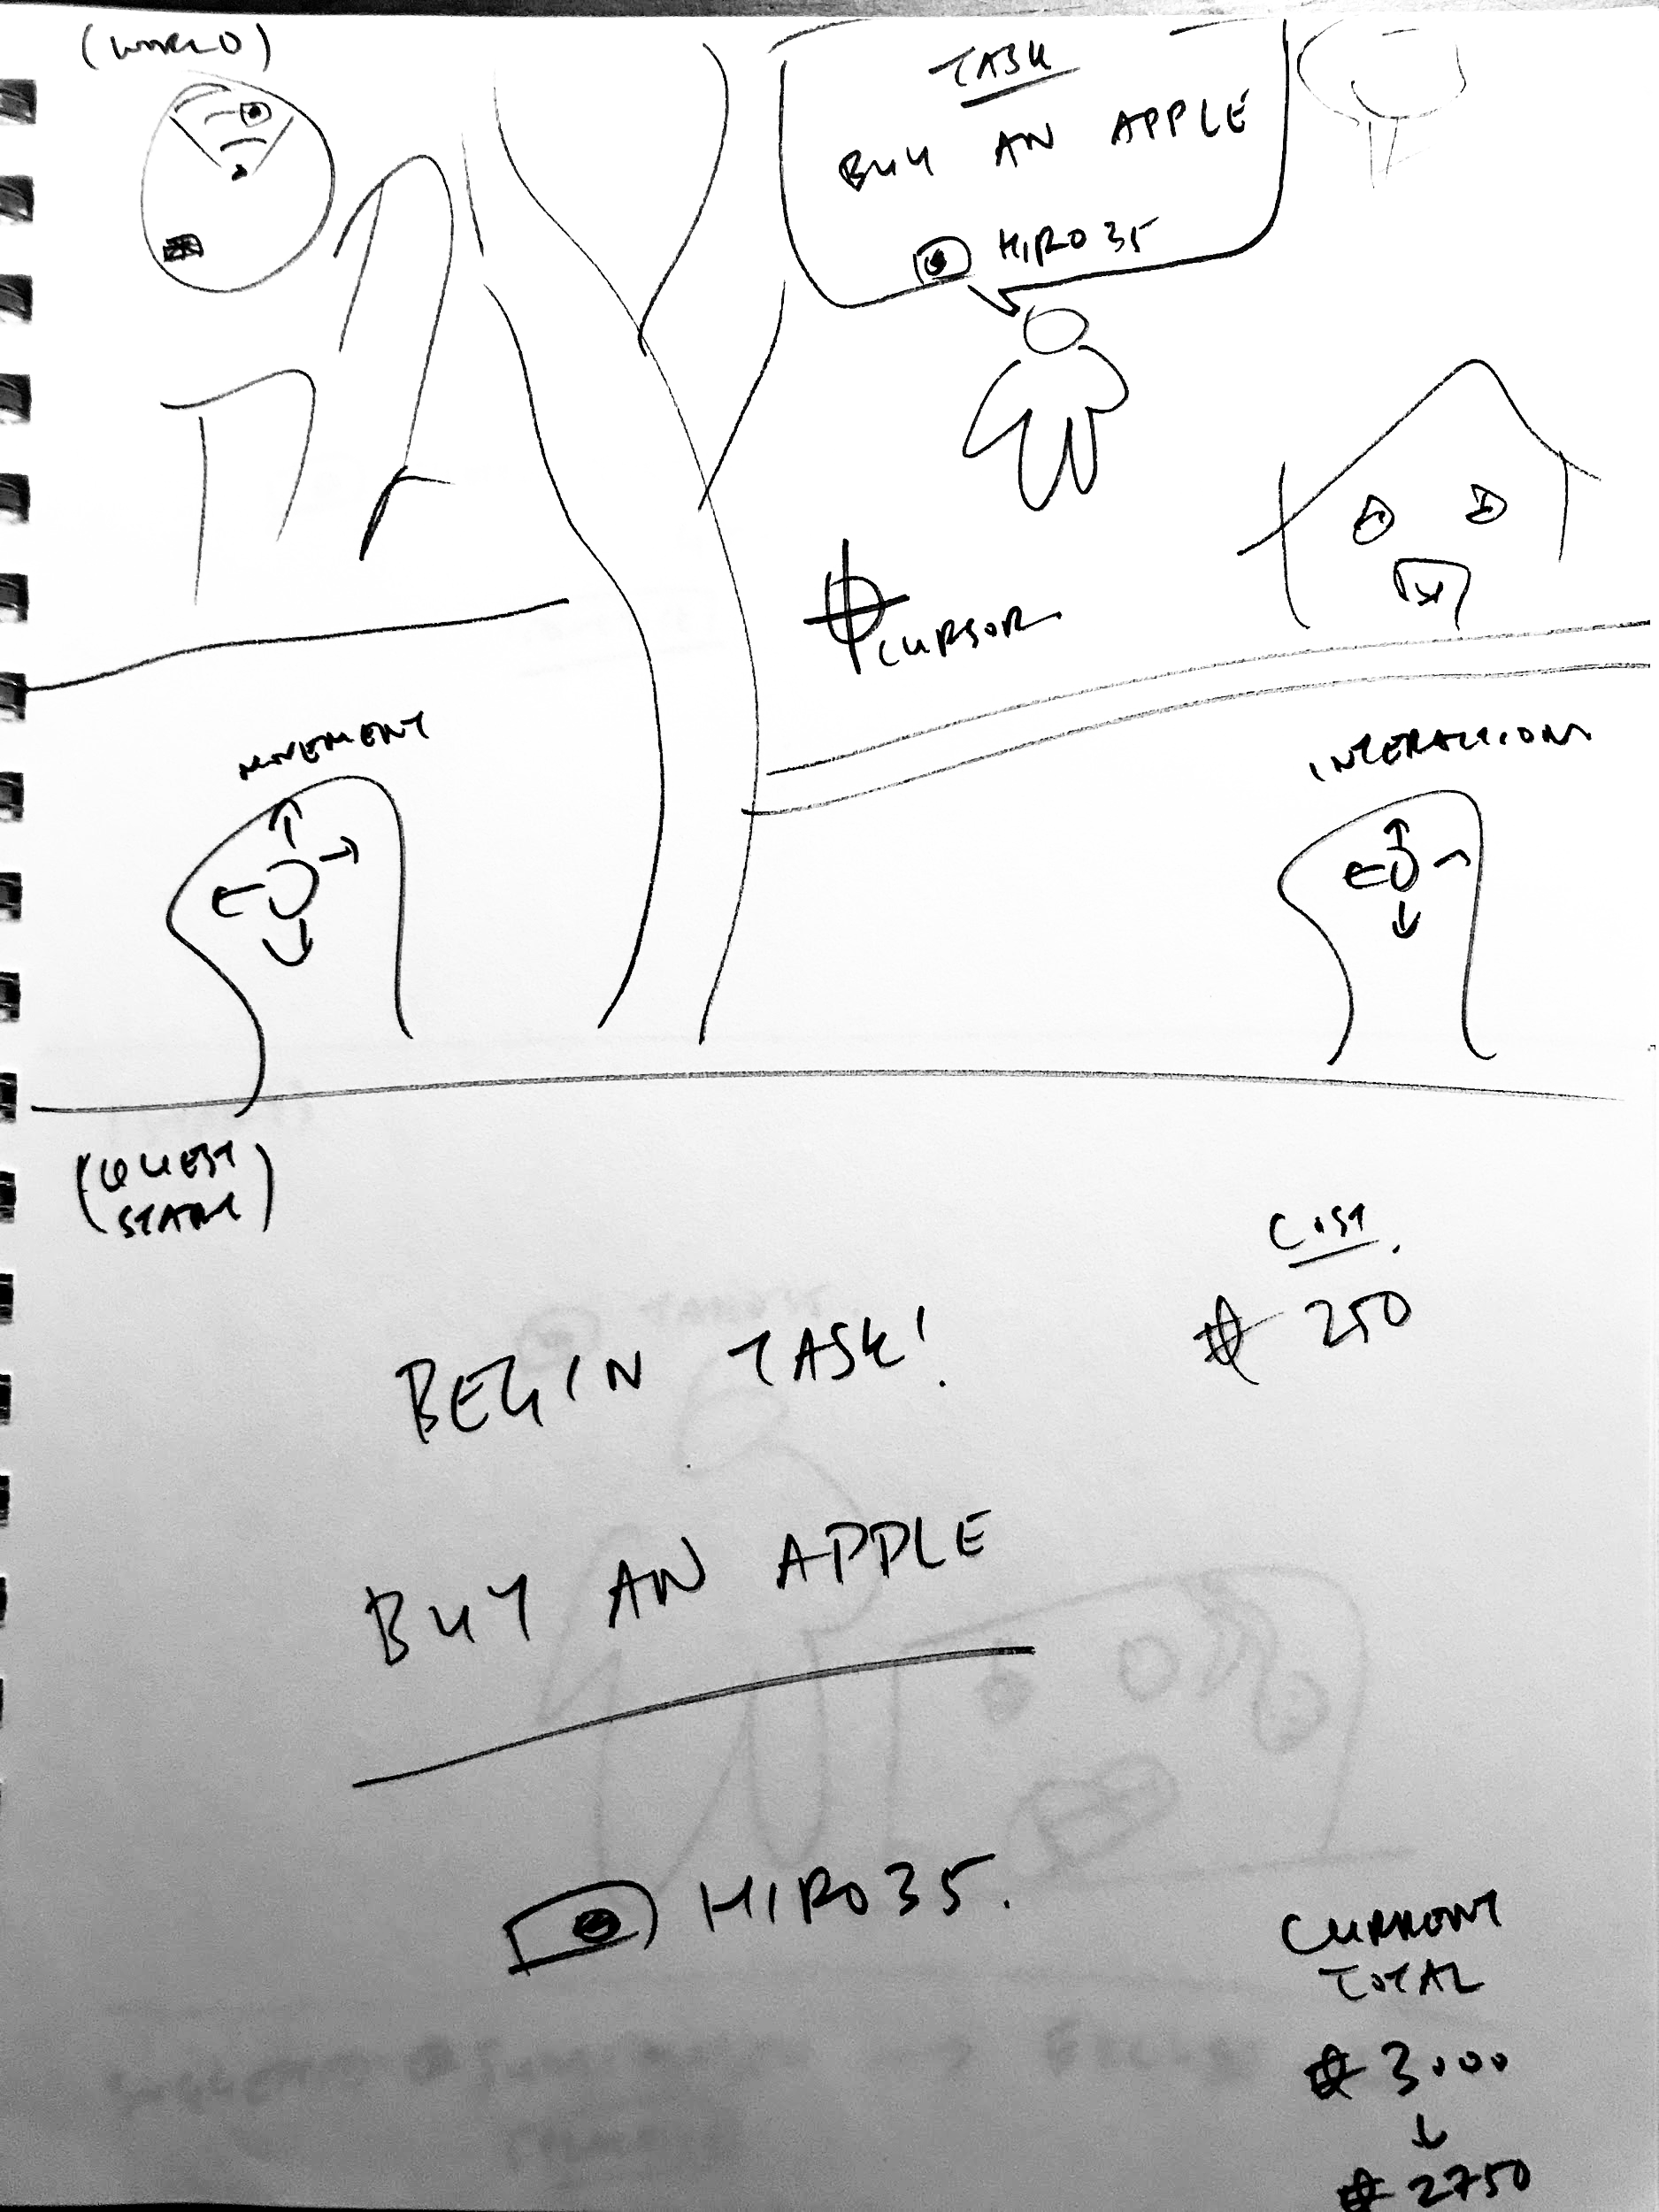 (WORLD)
TASK
BUY AN APPLE
HIRO35
CURSOR
MOVEMENT
INTERACTIONS
(QUEST
START)
COST
250
BEGIN TASK!
BUY AN APPLE
HIRO35.
CURRENT
TOTAL
3000
↓
2750